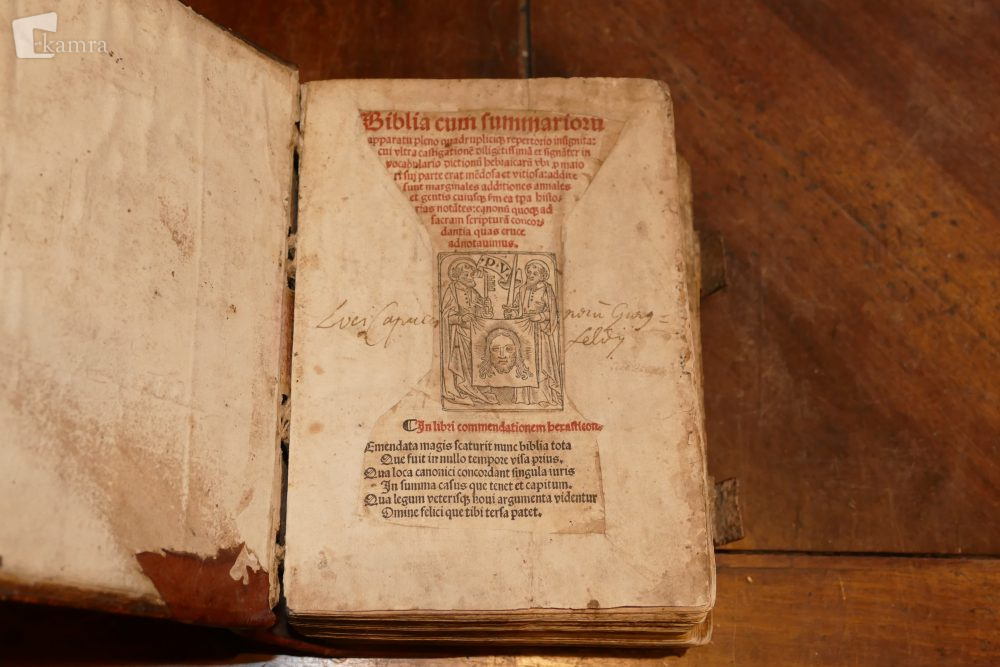 kamra
Biblia cum summarioru
apparatu pleno quadruplicique repertorio insignita:
cui vltra castigationē diligētissimā et signāter in
vocabulario dictionū hebraicarū vbi ꝓ maio
ri suj parte erat mēdosa et vitiosa: addite
sunt marginales additiones annales
et gentis cuiusqꝫ ... ea tpa histo⸗
rias notātes: canonū quoqꝫ ad
sacram scripturā concor⸗
dantia quas cruce
adnotauimus.
D. V.
Loci Capuci norū Georg=
feldij
¶In libri commendationem hexasticon.
Emendata magis scaturit nunc biblia tota
Que fuit in nullo tempore visa prius.
Qua loca canonici concordant singula iuris
In summa casus que tenet et capitum.
Qua legum veterisqꝫ noui argumenta videntur
Omine felici que tibi tersa patet.